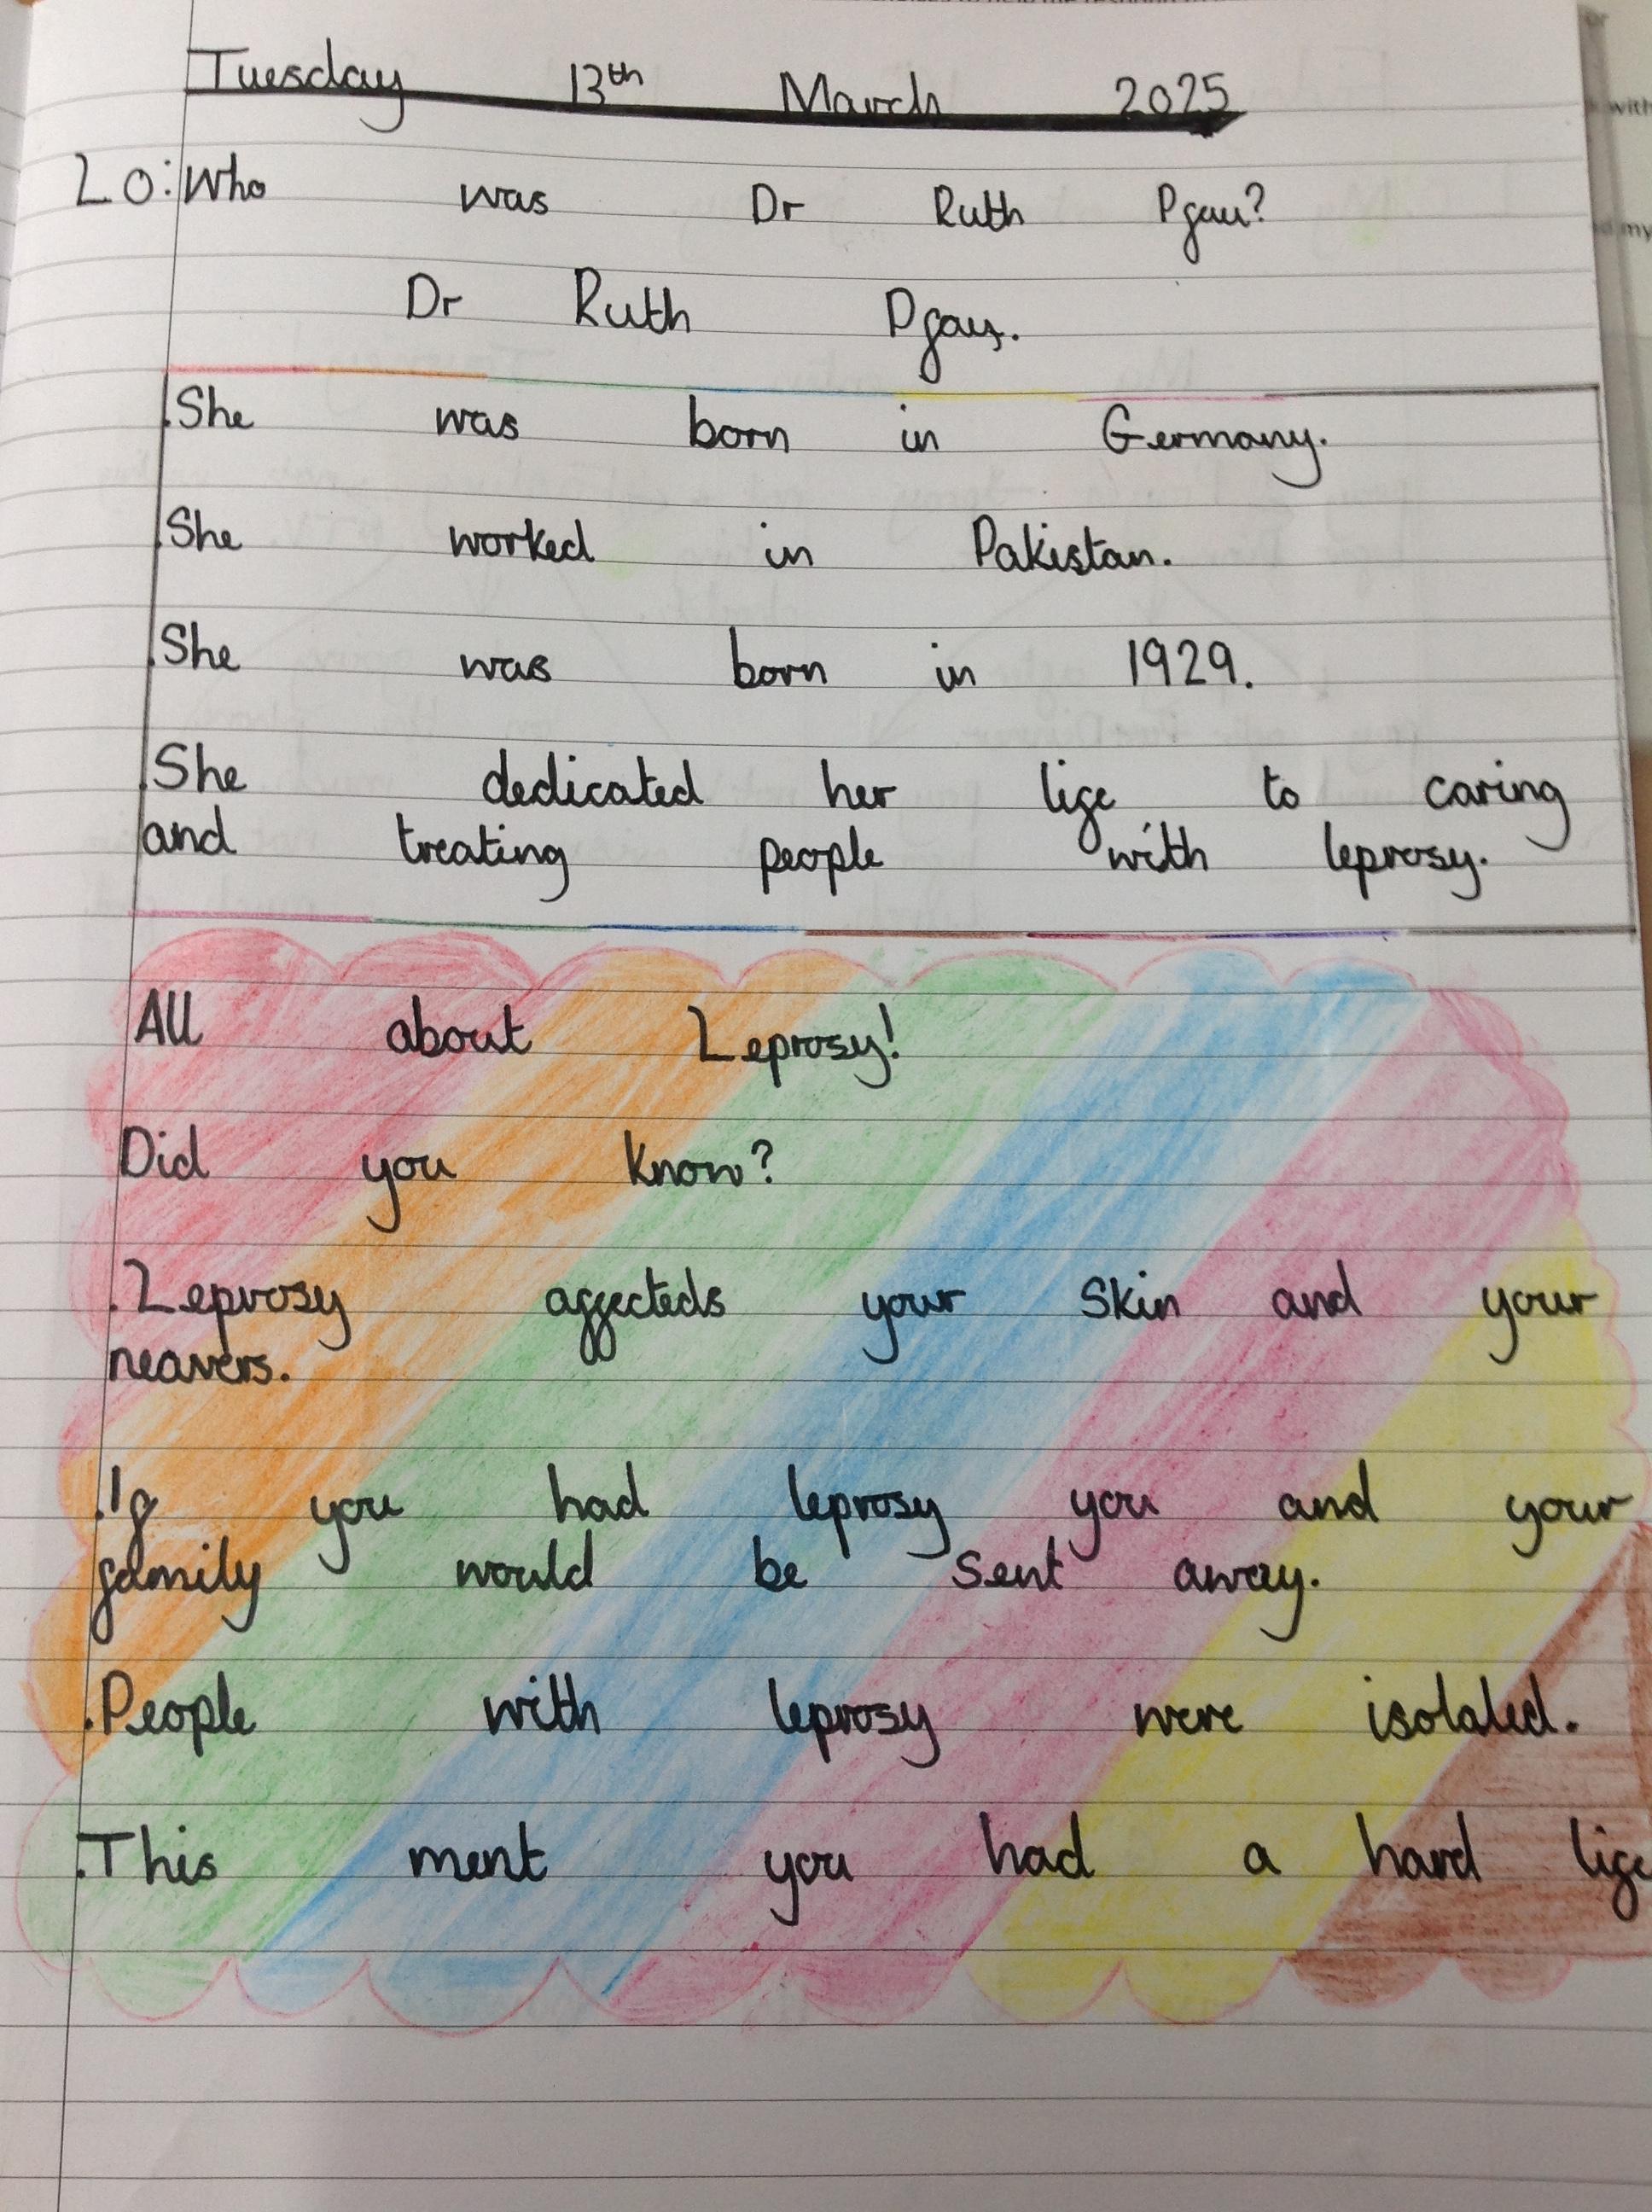 Tuesday 13th March 2025
LO: Who was Dr Ruth Pfau?
Dr Ruth Pfau.
.She was born in Germany.
.She worked in Pakistan.
.She was born in 1929.
.She dedicated her life to caring
and treating people with leprosy.
All about Leprosy!
Did you know?
.Leprosy affecteds your skin and your
neavers.
.If you had leprosy you and your
family would be sent away.
.People with leprosy were isolated.
.This ment you had a hard life